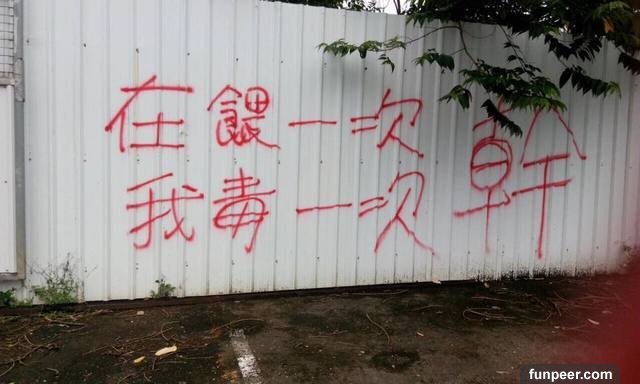 在餵一次
我毒一次
幹
funpeer.com